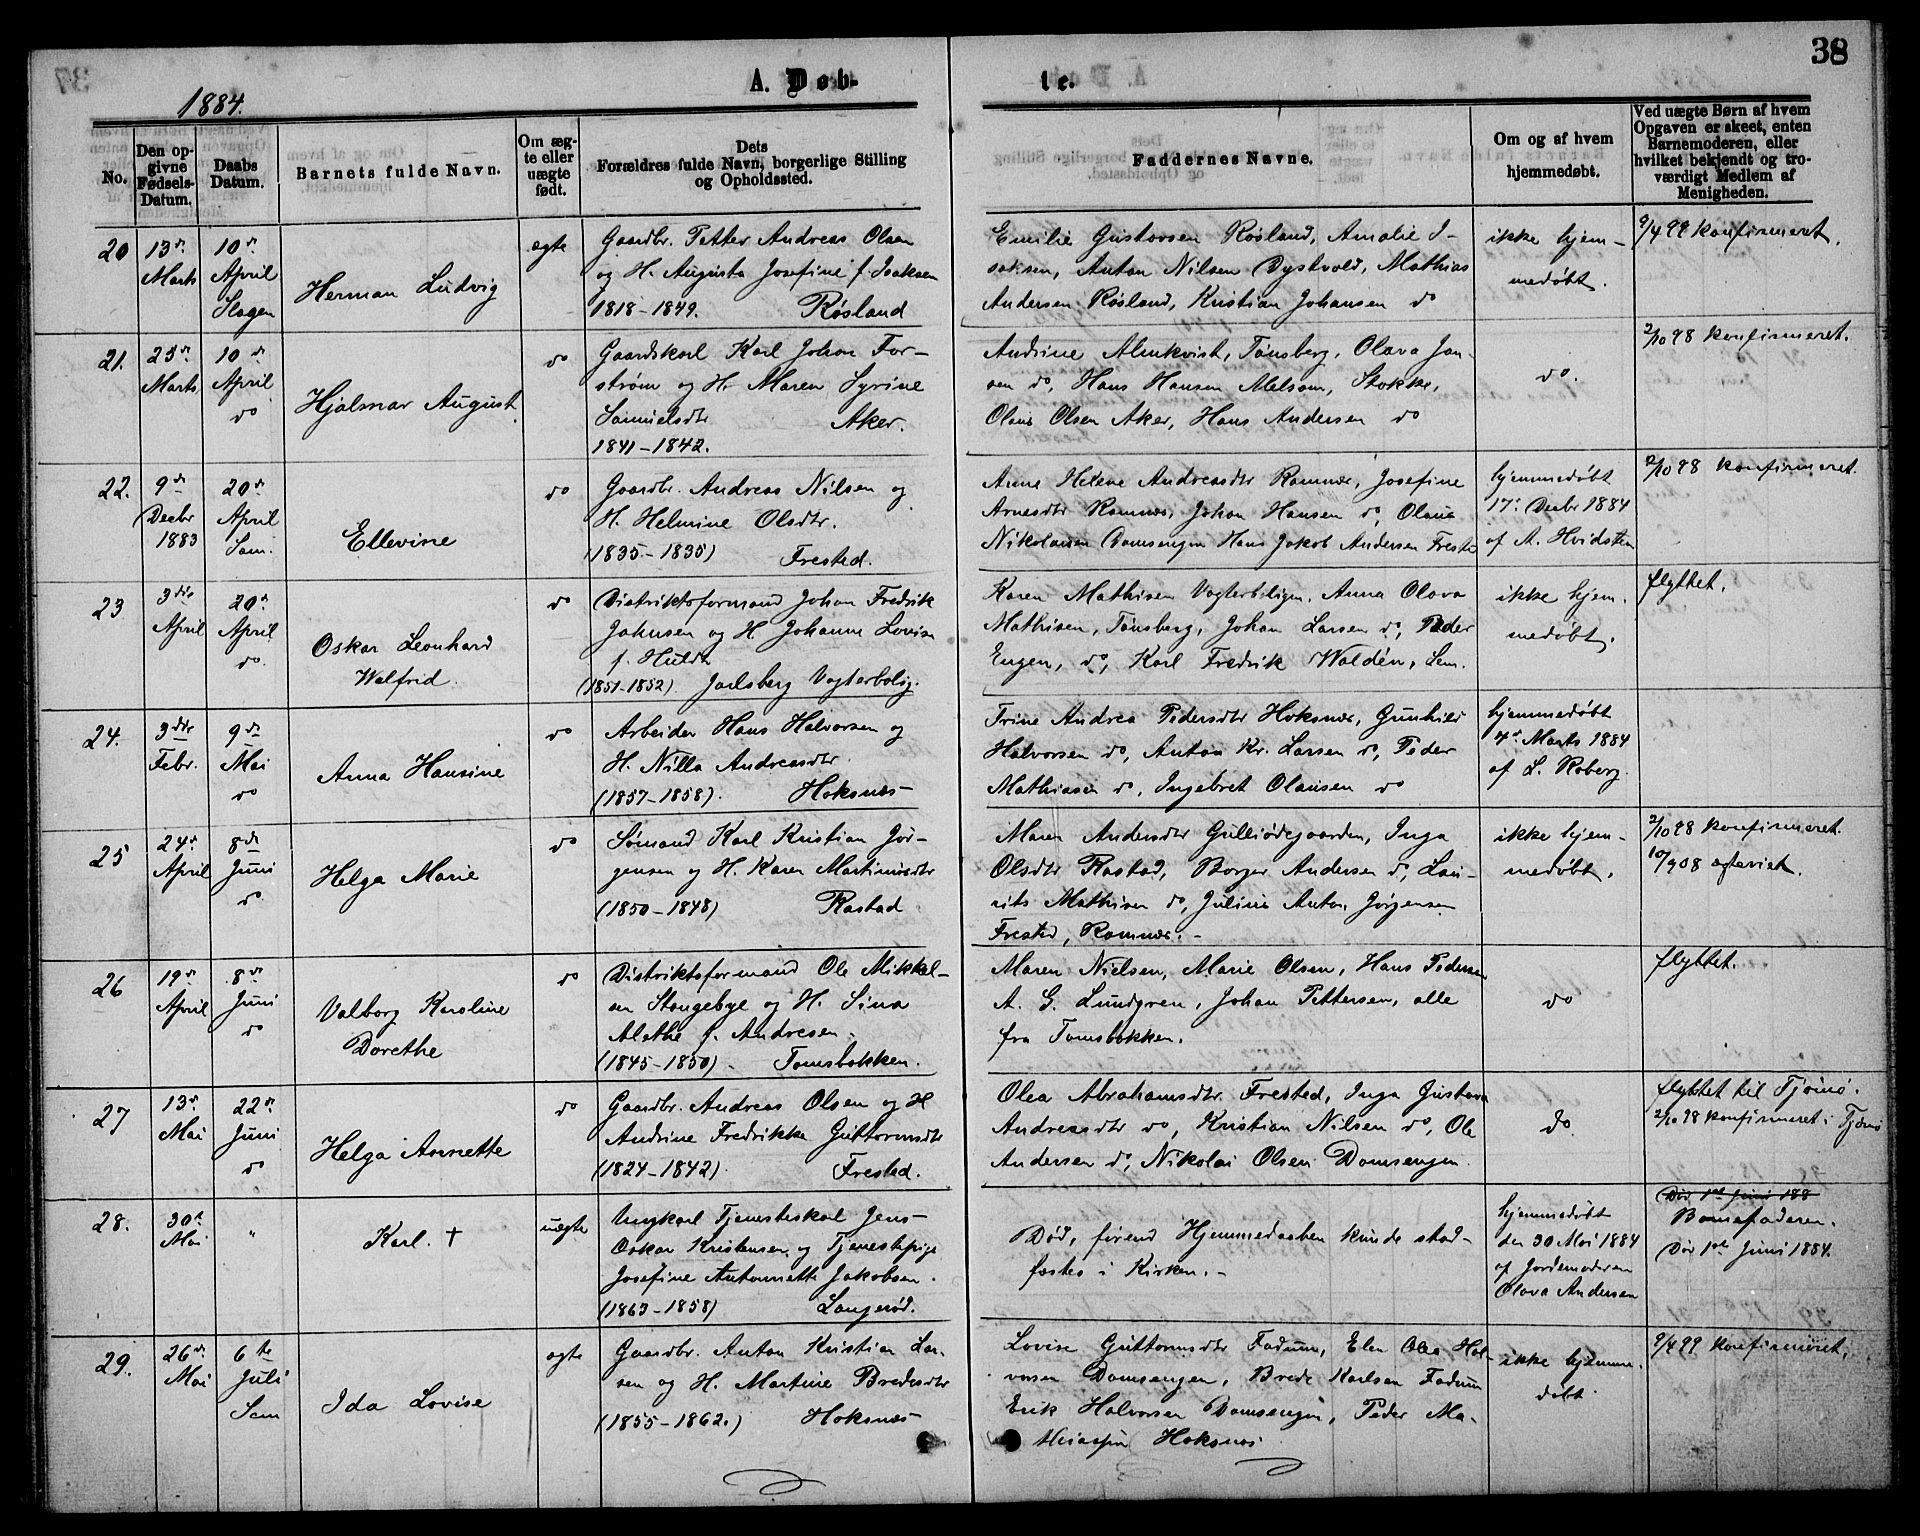 38
1884.
A. Døb-
te.
No.
Den op-
givne
Fødsels-
Datum.
Daabs
Datum.
Barnets fulde Navn.
Om æg-
te eller
uægte
født.
Dets
Forældres fulde Navn, borgerlige Stilling
og Opholdssted.
Faddernes Navne.
Om og af hvem
hjemmedøbt.
Ved uægte Børn af hvem
Opgaven er skeet, enten
Barnemoderen, eller
hvilket bekjendt og tro-
værdigt Medlem af
Menigheden.
20
13de
Marts
10de
April
Slagen
Herman Ludvig
ægte
Gaardbr. Petter Andreas Olsen
og H. Augusta Josefine f. Isaksen
1818-1849. Røsland
Emilie Gustavsen Røsland, Amalie I-
saksen, Anton Nilsen Dystvold, Mathias
Andersen Røsland, Kristian Johansen do
ikke hjem-
medøbt.
9/4 99 konfirmeret.
21.
25de
Marts
10de
April
do
Hjalmar August
do
Gaardskarl Karl Johan For-
strøm og H. Maren Syrine
Samuelsdtr Aker.
1841-1842.
Andrine Almkvist, Tønsberg, Olava Jan-
sen do, Hans Hansen Melsom, Stokke,
Olaus Olsen Aker, Hans Andersen do
do.
2/10 98 konfirmeret.
22.
9de
Decbr
1883
20de
April
Sem.
Ellevine
do
Gaardbr. Andreas Nilsen og
H. Helmine Olsdtr.
(1835-1835) Frested.
Anne Helene Andreasdtr Ramnæs, Josefine
Arnesdtr Ramnæs, Johan Hansen do, Olaus
Nikolaisen Domsengen Hans Jakob Andersen Frested
hjemmedøbt
17de Decbr 1884
af A. Hvidsten
2/10 98 konfirmeret.
23
3die
April
20de
April
do
Oskar Leonhard
Walfrid.
do
Distriktsformand Johan Fredrik
Johnsen og H. Johanne Lovise
f. Huldt
(1851-1852) Jarlsberg Vogterbolig.
Karen Mathisen Vogterboligen. Anna Olava
Mathisen, Tønsberg, Johan Larsen do, Peder
Engen, do, Karl Fredrik Waldén, Sem.
ikke hjem-
medøbt.
flyttet.
24.
3die
Febr.
9de
Mai
do
Anna Hansine
do
Arbeider Hans Halvorsen og
H. Nilla Andreasdtr.
(1857-1858). Hoksnæs
Trine Andrea Pedersdtr Hoksnæs, Gunhild
Halvorsen do, Anton Kr. Larsen do, Peder
Mathiasen do, Ingebret Olausen do
hjemmedøbt
4de Marts 1884
af L. Roberg.
25
24de
April
8de
Juni
do
Helga Marie
do
Sømand Karl Kristian Jør-
gensen og H. Karen Martinusdtr
(1850-1848) Rastad
Maren Andersdtr Gulliødegaarden, Inga
Olsdtr Rastad, Borger Andersen do, Lau-
rits Mathisen do, Julius Anton Jørgensen
Frested, Ramnæs.
ikke hjem-
medøbt.
2/10 98 konfirmeret.
10/9 08 ægteviet.
26
19de
April
8de
Juni
do
Valborg Karoline
Dorethe
do
Distriktsformand Ole Mikkel-
sen Stangebye og H. Sina
Alethe f. Andresen.
(1845-1850). Tomsbakken.
Maren Nielsen, Marie Olsen, Hans Pedersen
A. G. Lundgren, Johan Pettersen, alle
fra Tomsbakken.
do
flyttet.
27
13de
Mai
22de
Juni
do
Helga Annette
do
Gaardbr. Andreas Olsen og H
Andrine Fredrikke Guttormsdtr
(1824-1842). Frested.
Olea Abrahamsdtr Frested, Inga Gustava
Andreasdtr do, Kristian Nilsen do, Ole
Andersen do, Nikolai Olsen Domsengen.
do.
flyttet til Tjømø.
2/10 98 konfirmeret i Tjømø
28.
30te
Mai
"
Karl. †
uægte
Ungkarl Tjenestekarl Jens
Oskar Kristensen og Tjenestepige
Josefine Antonnette Jakobsen.
(1863-1858) Langerød.
Død, førend Hjemmedaaben kunde stad-
fæstes i Kirken.
hjemmedøbt
den 30 Mai 1884
af Jordemoderen
Olava Andersen
Død 1ste Juni 188
Barnefaderen.
Død 1ste Juni 1884.
29.
26de
Mai
6te
Juli
Sem
Ida Lovise
ægte
Gaardbr. Anton Kristian Lar-
sen og H. Martine Bredesdtr
(1855-1862.) Hoksnæs
Lovise Guttormsdtr Fadum, Elen Olea Hal-
vorsen Domsengen, Brede Karlsen Fadum
Erik Halvorsen Domsengen, Peder Ma-
thiassen Hoksnæs
ikke hjemme-
døbt.
9/4 99 konfirmeret.